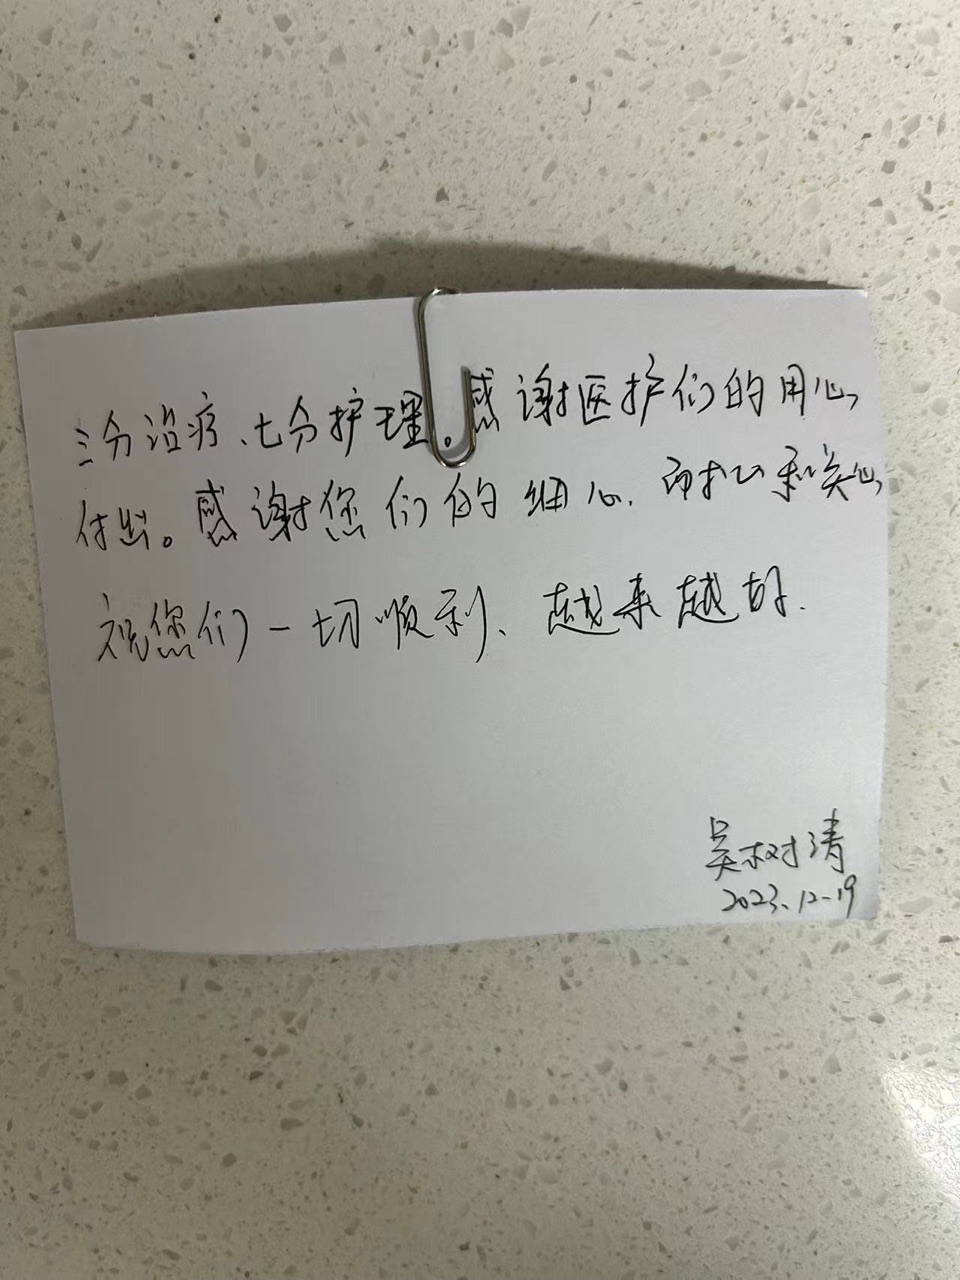 三分治疗、七分护理。感谢医护们的用心
付出。感谢您们的细心、耐心和关心
祝您们一切顺利、越来越好.
吴树清
2023.12.19